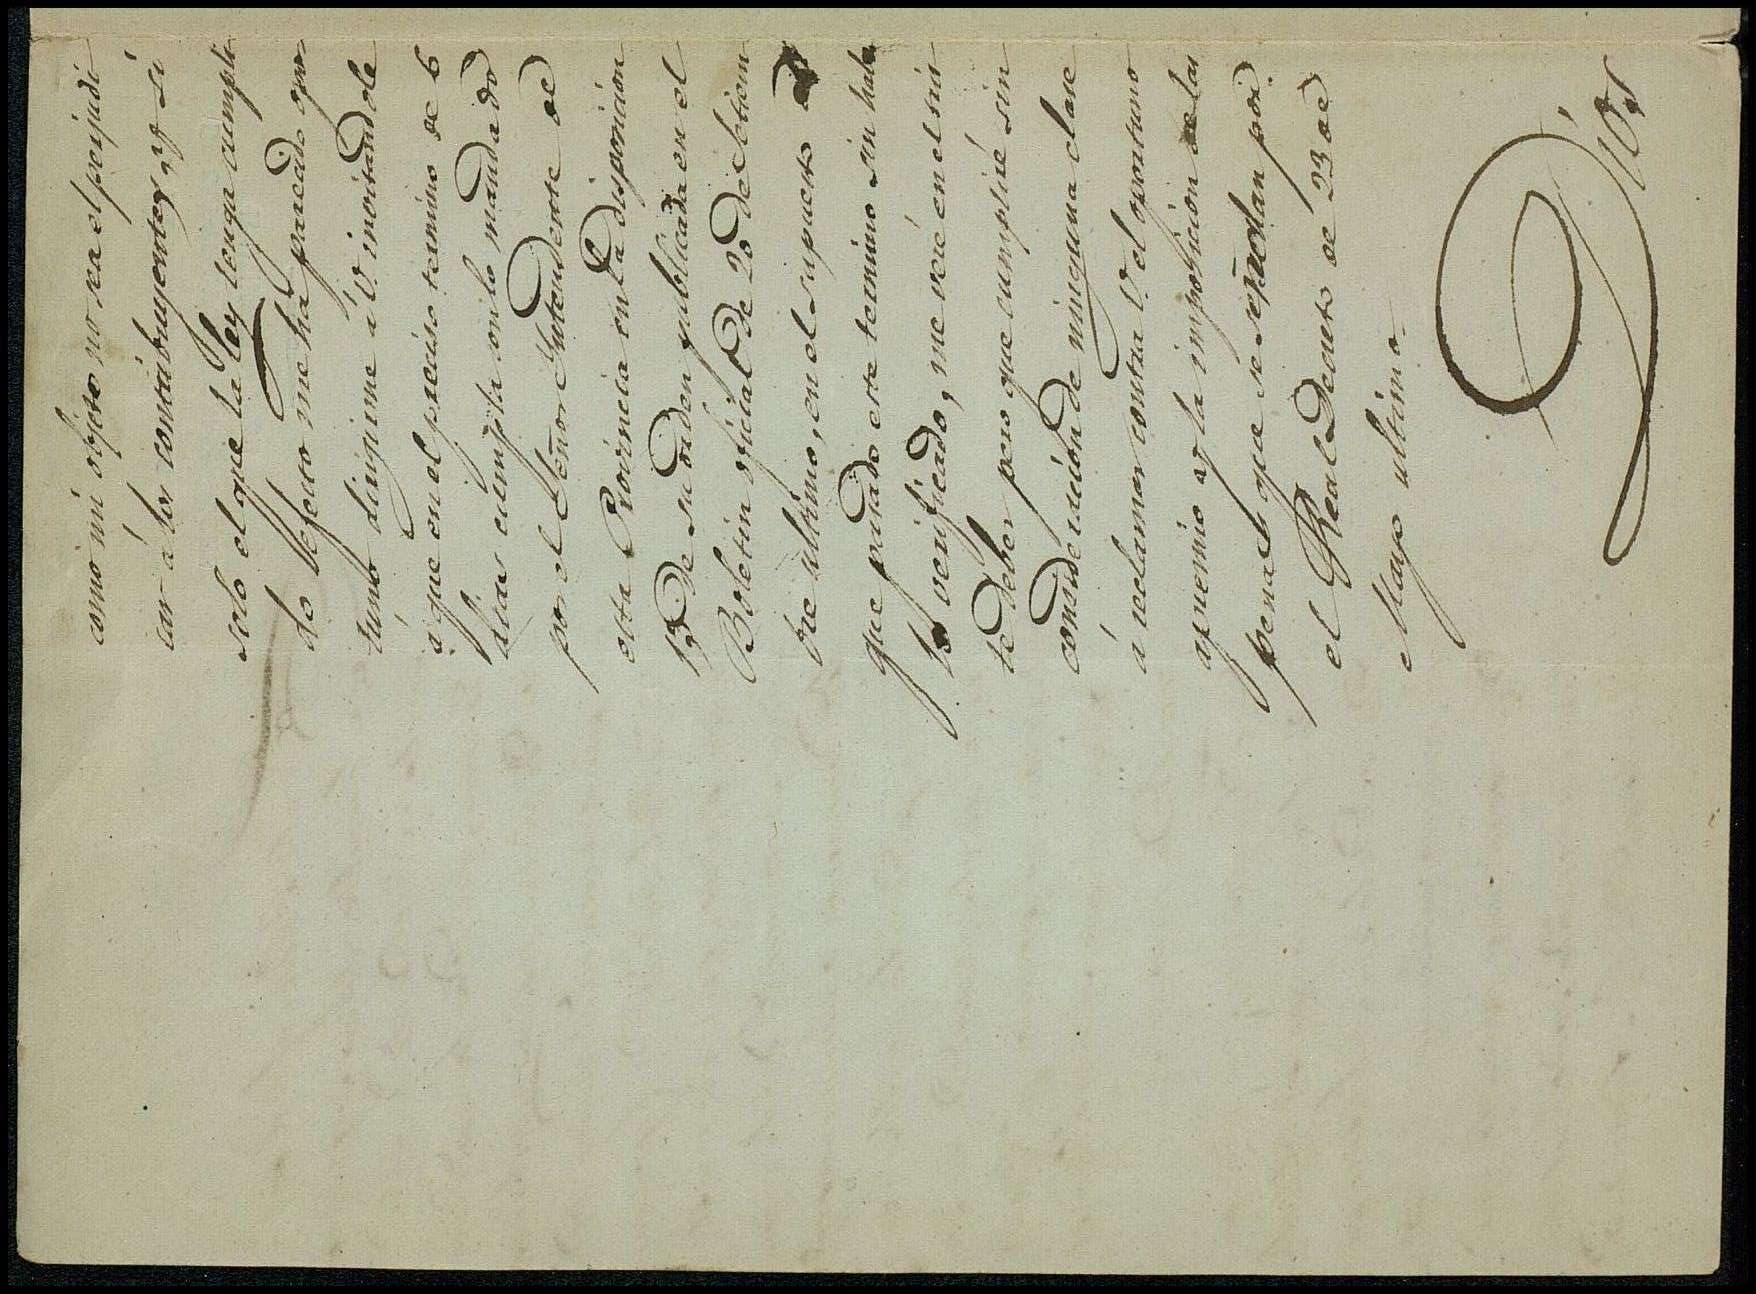 como mi objeto no sea el perjudi
car á los contribuyentes, y si
solo el que la ley tenga cumpli
do efecto me há parecido opor
tuno dirigirme á V. instandole
á que en el preciso termino de 6
dias cumpla con lo mandado
por el Señor Yntendente de
esta Provincia en la disposición
13 de su orden publicada en el
Boletin oficial de 20 de Setiem
bre ultimo, en el supuesto de
que pasado este termino sin haber
lo verificado, me veré en el
te deber pero que cumpliré sin
consideración de ninguna clase
á reclamar contra V. el oportuno
apremio y la imposición de las
penas que se señalan por
el Real Decreto de 23 de
Mayo ultimo.